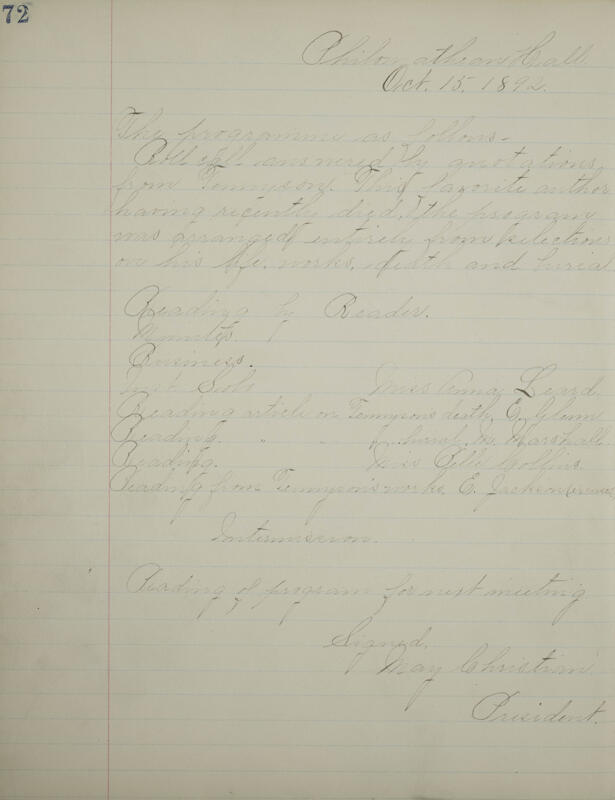 72
Philomathean Hall
Oct. 15, 1892.
The programme as follows-
Roll call answered by quotations
from Tennyson. This favorite author
having recently died, the program
was arranged entirely from selections
on his life, works, death and burial
Reading by Reader.
Minutes.
Business.
Solo Miss Anna Beard
Reading article on Tennysons death, E. Glenn
Reading " " burial, M. Marshall.
Reading. Miss Belle Collins.
Reading from Tennyson's works, E. Jackson
Intermission.
Reading of program for next meeting
Signed,
May Christian
President.